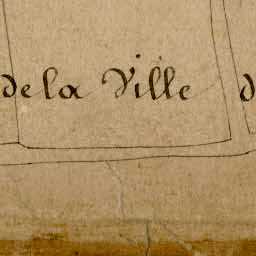 de la Ville d